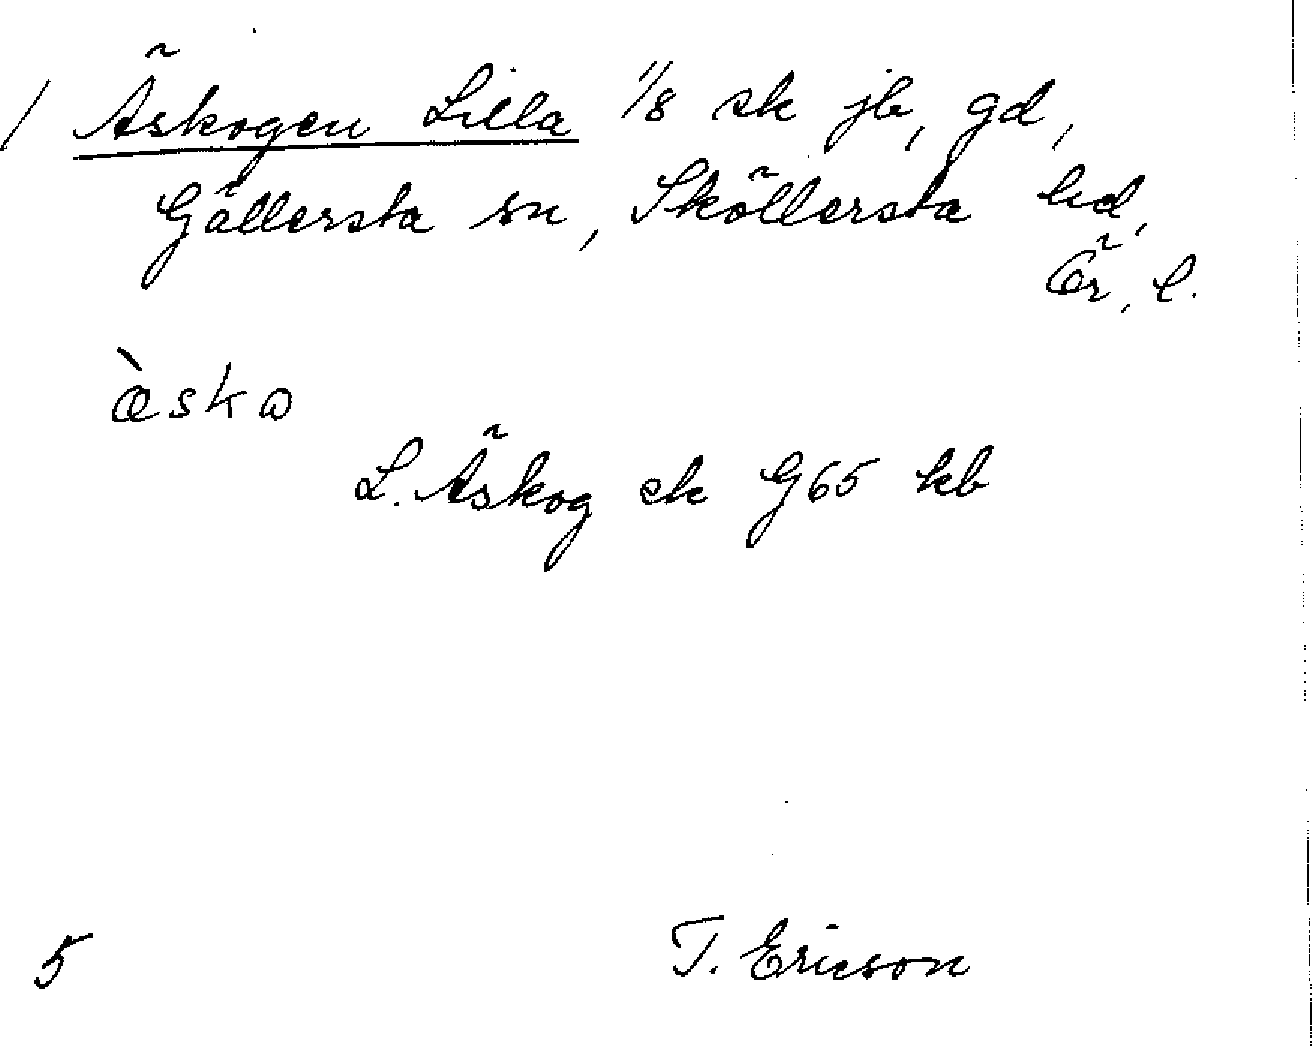 / Äskogen Lilla 1/8 sk jb, gd,
Gällersta sn, Sköllersta hd,
Ör. l.
æ̀skɷ
L. Äskog sk G65 kb
5 T. Ericson